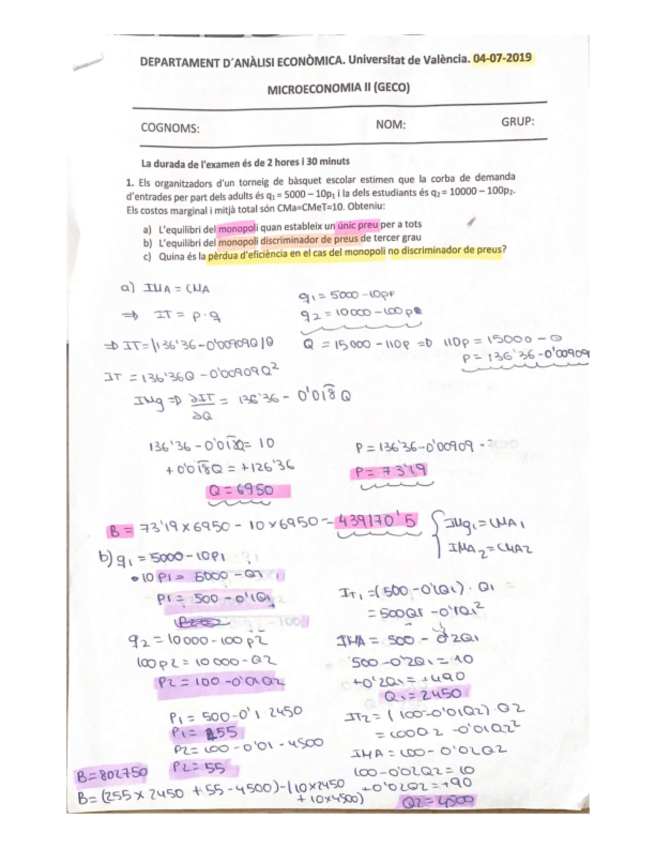 DEPARTAMENT D´ANÀLISI ECONÒMICA. Universitat de València. 04-07-2019
MICROECONOMIA II (GECO)
COGNOMS: NOM: GRUP:
La durada de l'examen és de 2 hores i 30 minuts
1. Els organitzadors d'un torneig de bàsquet escolar estimen que la corba de demanda
d'entrades per part dels adults és q₁ = 5000 – 10p₁ i la dels estudiants és q₂ = 10000 – 100p₂.
Els costos marginal i mitjà total són CMa=CMeT=10. Obteniu:
a) L'equilibri del monopoli quan estableix un únic preu per a tots
b) L'equilibri del monopoli discriminador de preus de tercer grau
c) Quina és la pèrdua d'eficiència en el cas del monopoli no discriminador de preus?
a) IMA = CMA
⇒ IT = p·q
q₁ = 5000 – 10p₁
q₂ = 10000 – 100p
⇒ IT = (136'36 – 0'00909Q)Q
Q = 15000 – 110p ⇒ 110p = 15000 – Q
P = 136'36 – 0'00909
IT = 136'36Q – 0'00909Q²
IMg ⇒ ∂IT/∂Q = 136'36 – 0'018 Q
136'36 – 0'018Q = 10
+0'018Q = +126'36
Q = 6950
P = 136'36 – 0'00909 ·
P = 73'19
B = 73'19 x 6950 – 10 x 6950 = 439170'5
IMg₁ = CMA₁
IMA₂ = CMA2
b) q₁ = 5000 – 10P₁
• 10 P₁ = 5000 – Q₁
P₁ = 500 – 0'1Q₁
q₂ = 10000 – 100 p2
100p2 = 10000 – Q2
P2 = 100 – 0'01Q2
P₁ = 500 – 0'1 · 2450
P₁ = 255
P2 = 100 – 0'01 – 4500
P2 = 55
IT₁ = (500 – 0'1Q₁) · Q₁
= 500Q₁ – 0'1Q₁²
IMA = 500 – 0'2Q₁
500 – 0'2Q₁ = 10
+0'2Q₁ = +490
Q₁ = 2450
IT2 = (100 – 0'01Q2) · Q2
= 100Q2 – 0'01Q2²
IMA = 100 – 0'02Q2
100 – 0'02Q2 = 10
+0'02Q2 = +90
Q2 = 4500
B = 802750
B = (255 x 2450 + 55 – 4500) – (10x2450
+ 10x4500)